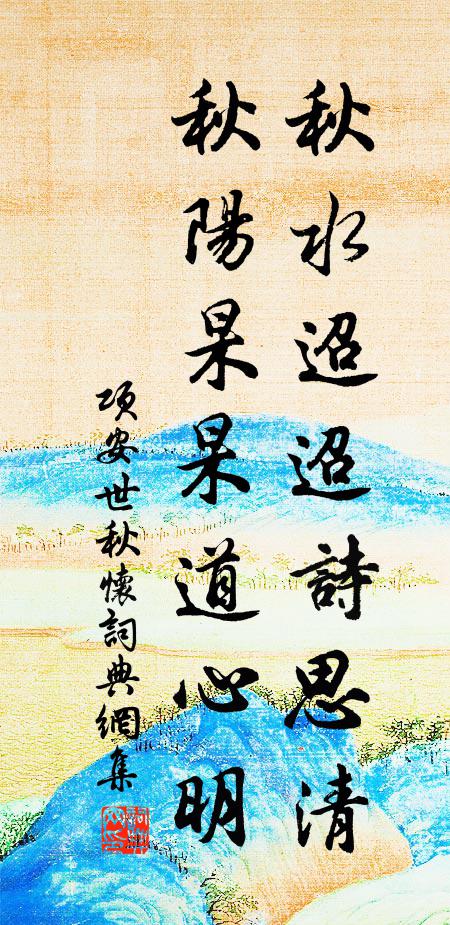 秋水迢迢詩思清
秋陽杲杲道心明
項安世秋懷詞典網集